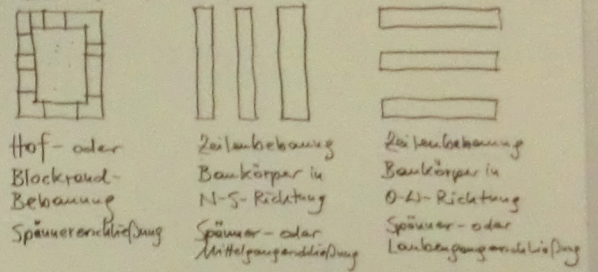 Hof- oder
Blockrand-
Bebauung
Spännererschließung
Zeilenbebauung
Baukörper in
N-S-Richtung
Spänner- oder
Mittelgangerschließung
Zeilenbebauung
Baukörper in
O-W-Richtung
Spänner- oder
Laubengangerschließung